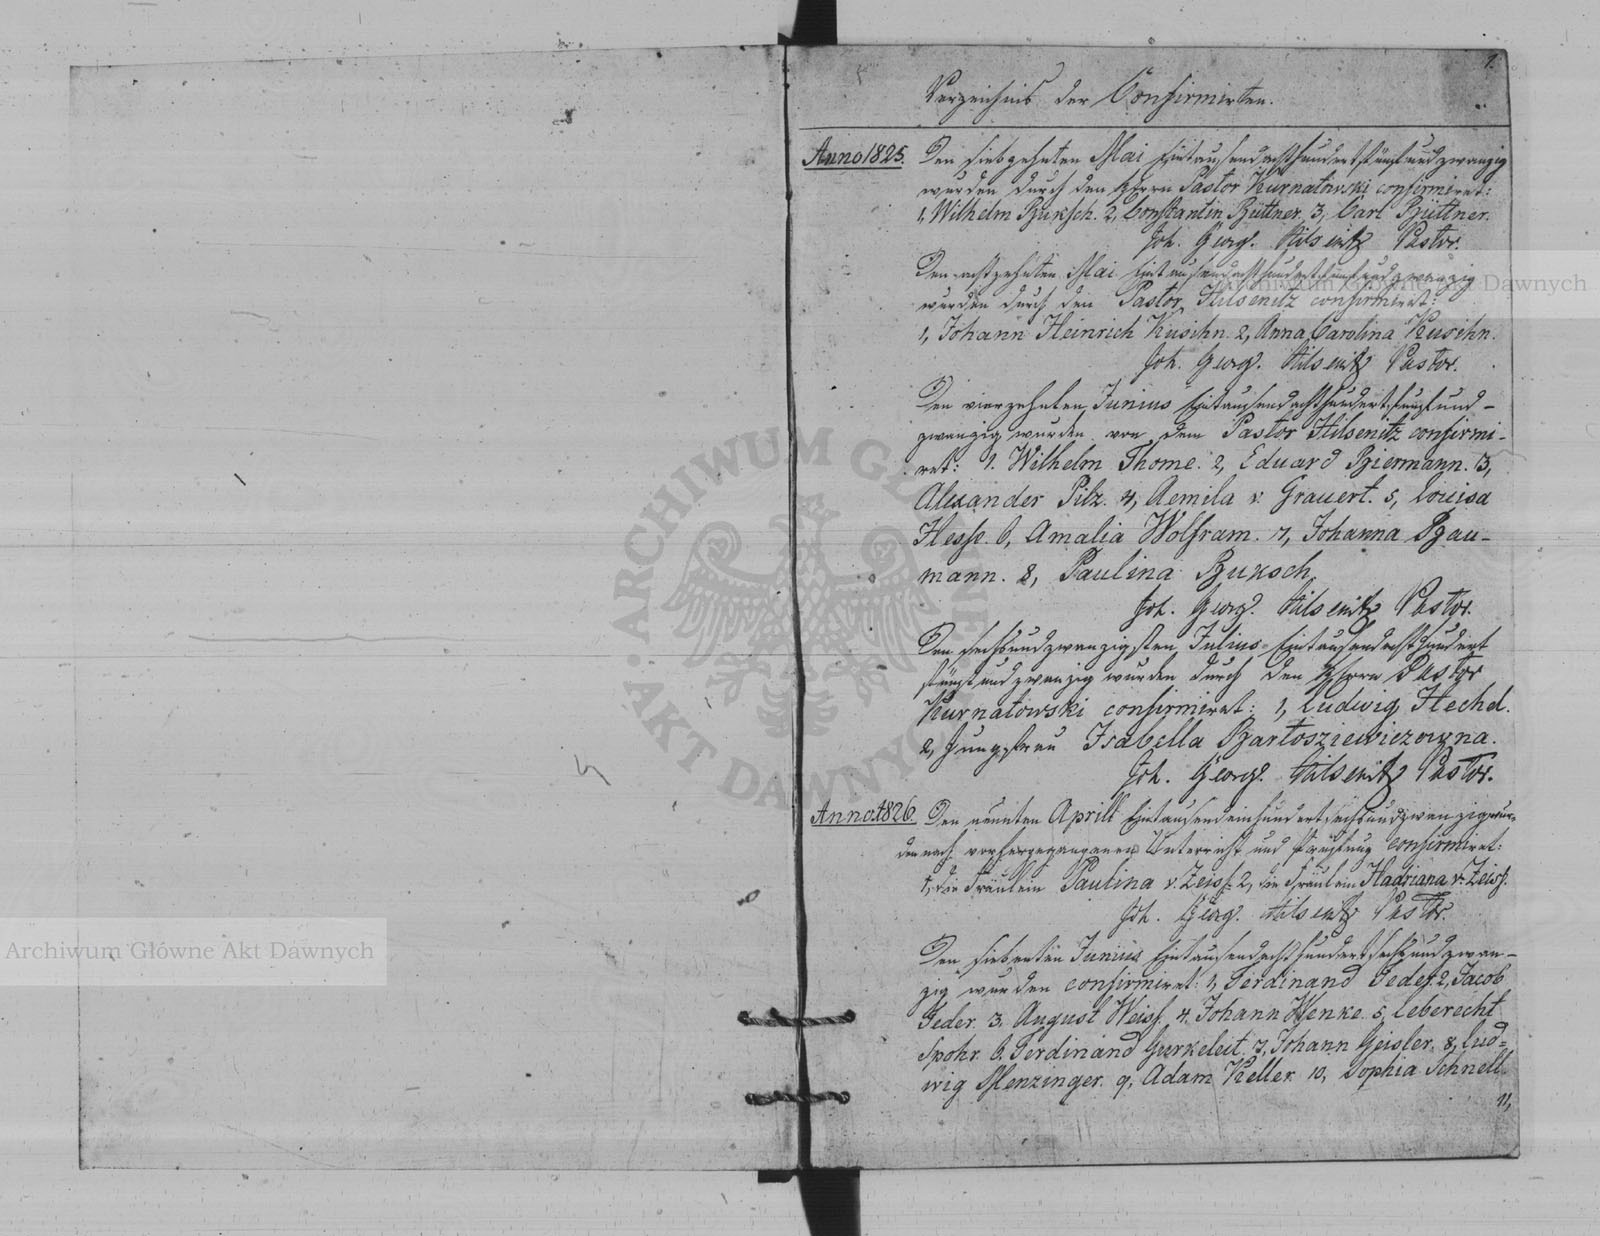 1.
Verzeichnis der Confirmirten.
Anno 1825. Den siebzehnten Mai Eintausendachthundertfünfundzwanzig
wurden durch den Herrn Pastor Kurnatowski confirmiret:
1, Wilhelm Buksch. 2, Constantin Büttner. 3, Carl Büttner.
Joh. Georg. Hilsenitz Pastor.
Den achtzehnten Mai Eintausendachthundertfünfundzwanzig
wurden durch den Pastor Hilsenitz confirmiret:
1, Johann Heinrich Kusihn. 2, Anna Carolina Kusihn.
Joh. Georg. Hilsenitz Pastor.
Den vierzehnten Junius Eintausendachthundertfünfund-
zwanzig wurden von dem Pastor Hilsenitz confirmi-
ret: 1. Wilhelm Thome. 2, Eduard Biermann. 3,
Alexander Pilz. 4, Aemila v. Grauert. 5, Louisa
Hesse. 6, Amalia Wolfram. 7, Johanna Bau-
mann. 8, Paulina Buksch.
Joh. Georg. Hilsenitz Pastor.
Den sechsundzwanzigsten Julius Eintausendachthundert
fünfundzwanzig wurden durch den Herrn Pastor
Kurnatowski confirmiret: 1, Ludwig Hechel.
2, Jungfrau Isabella Bartosziewiczowna.
Joh. Georg. Hilsenitz Pastor.
Anno 1826. Den neunten Aprill Eintausendeinhundertsechsundzwanzig wur-
den nach vorhergegangenen Unterricht und Prüfung confirmiret:
1, die Fräulein Paulina v. Zeiss. 2, die Fräulein Hadriana v. Zeiss.
Joh. Georg. Hilsenitz Pastor.
Den siebenten Junius Eintausendachthundertsechsundzwan-
zig wurden confirmiret: 1, Ferdinand Feder. 2, Jacob
Feder. 3, August Weiss. 4. Johann Wenke. 5, Leberecht
Spohr. 6. Ferdinand Gurkeleit. 7, Johann Geisler. 8, Lud-
wig Menzinger. 9, Adam Keller. 10, Sophia Schnell.
11,
Archiwum Główne Akt Dawnych
Archiwum Główne Akt Dawnych
ARCHIWUM GŁÓWNE AKT DAWNYCH